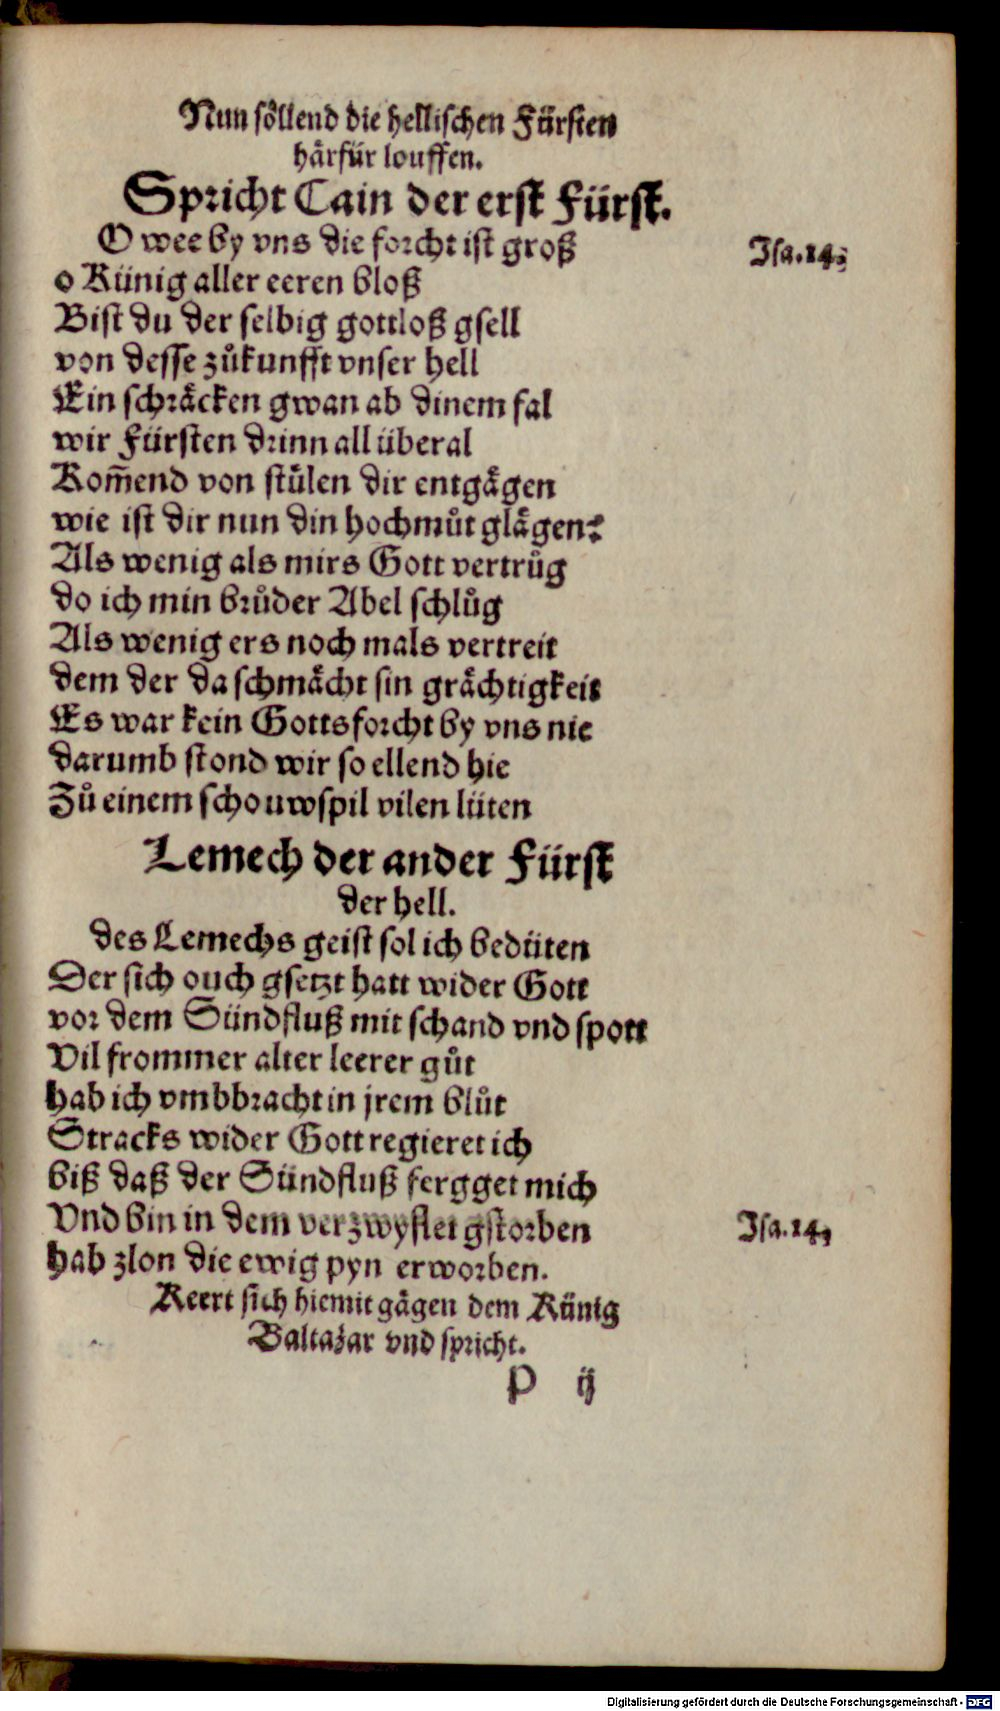 Nun söllend die hellischen Fürsten
härfür louffen.
Spricht Cain der erst Fürst.
O wee by vns die forcht ist groß
Isa.14.
o Künig aller eeren bloß
Bist du der selbig gottloß gsell
von desse zůkunfft vnser hell
Ein schräcken gwan ab dinem fal
wir Fürsten drinn all überal
Kom̄end von stülen dir entgägen
wie ist dir nun din hochmůt glägen?
Als wenig als mirs Gott vertrůg
do ich min brůder Abel schlůg
Als wenig ers noch mals vertreit
dem der da schmächt sin grächtigkeit
Es war kein Gottsforcht by vns nie
darumb stond wir so ellend hie
Zů einem schouwspil vilen lüten
Lemech der ander Fürst
der hell.
des Lemechs geist sol ich bedüten
Der sich ouch gsetzt hatt wider Gott
vor dem Sündfluß mit schand vnd spott
Vil frommer alter leerer gůt
hab ich vmbbracht in jrem blůt
Stracks wider Gott regieret ich
biß daß der Sündfluß fergget mich
Vnd bin in dem verzwyflet gstorben
Isa.14,
hab zlon die ewig pyn erworben.
Keert sich hiemit gägen dem Künig
Baltazar vnd spricht.
P ij
Digitalisierung gefördert durch die Deutsche Forschungsgemeinschaft - DFG